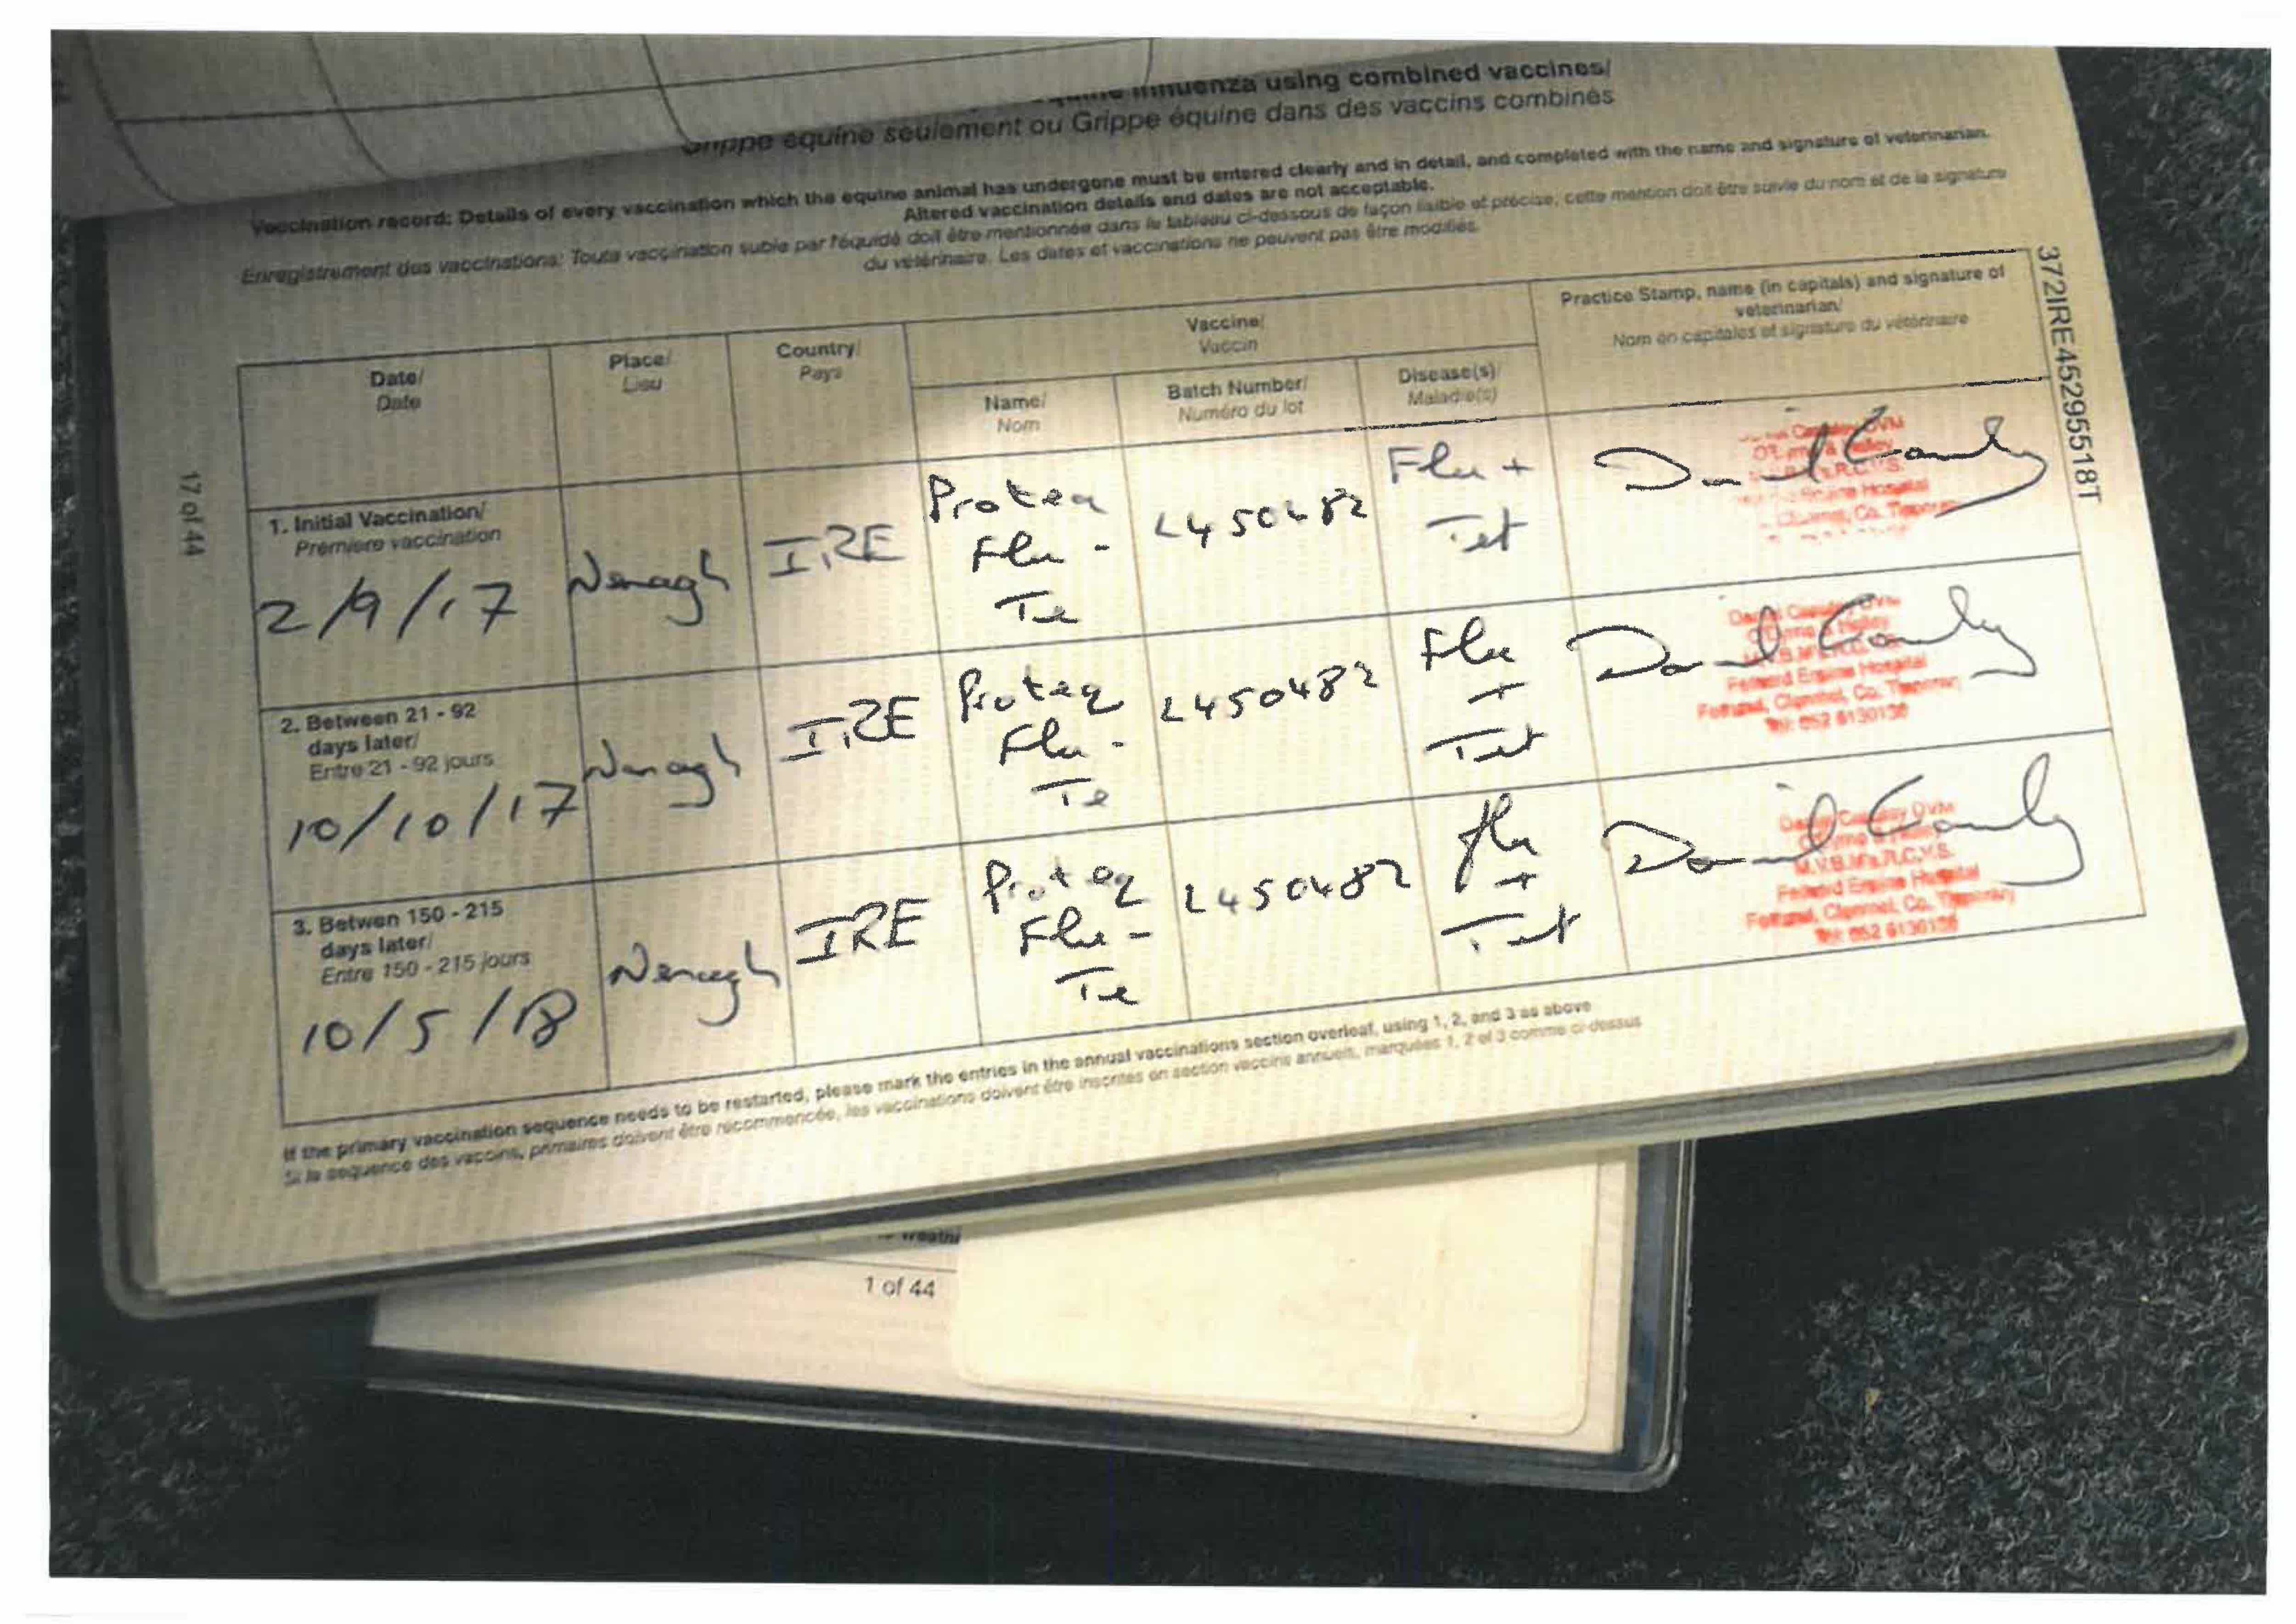 influenza using combined vaccines/
Grippe équine seulement ou Grippe équine dans des vaccins combinés
Vaccination record: Details of every vaccination which the equine animal has undergone must be entered clearly and in detail, and completed with the name and signature of veterinarian.
Altered vaccination details and dates are not acceptable.
Enregistrement des vaccinations: Toute vaccination subie par l'équidé doit être mentionnée dans le tableau ci-dessous de façon lisible et précise; cette mention doit être suivie du nom et de la signature
du vétérinaire. Les dates et vaccinations ne peuvent pas être modifiés.
372IRE45295518T
17 of 44
Date/
Date
Place/
Lieu
Country/
Pays
Vaccine/
Vaccin
Name/
Nom
Batch Number/
Numéro du lot
Disease(s)/
Maladie(s)
Practice Stamp, name (in capitals) and signature of
veterinarian/
Nom en capitales et signature du vétérinaire
1. Initial Vaccination/
Premiere vaccination
2/9/17
Nenagh
IRE
Proteq
Flu -
Te
L450482
Flu +
Tet
2. Between 21 - 92
days later/
Entre 21 - 92 jours
10/10/17
Nenagh
IRE
Proteq
Flu -
Te
L450482
Flu
+
Tet
Fethard Equine Hospital
Fethard, Clonmel, Co. Tipperary
Tel: 052 6130156
3. Betwen 150 - 215
days later/
Entre 150 - 215 jours
10/5/18
Nenagh
IRE
Proteq
Flu -
Te
L450482
flu
+
Tet
M.V.B. M.R.C.V.S.
Fethard Equine Hospital
Fethard, Clonmel, Co. Tipperary
Tel: 052 6130156
If the primary vaccination sequence needs to be restarted, please mark the entries in the annual vaccinations section overleaf, using 1, 2, and 3 as above
Si la sequence des vaccins, primaires doivent être recommencée, les vaccinations doivent être inscrites en section vaccins annuels, marquées 1, 2 et 3 comme ci-dessus
1 of 44